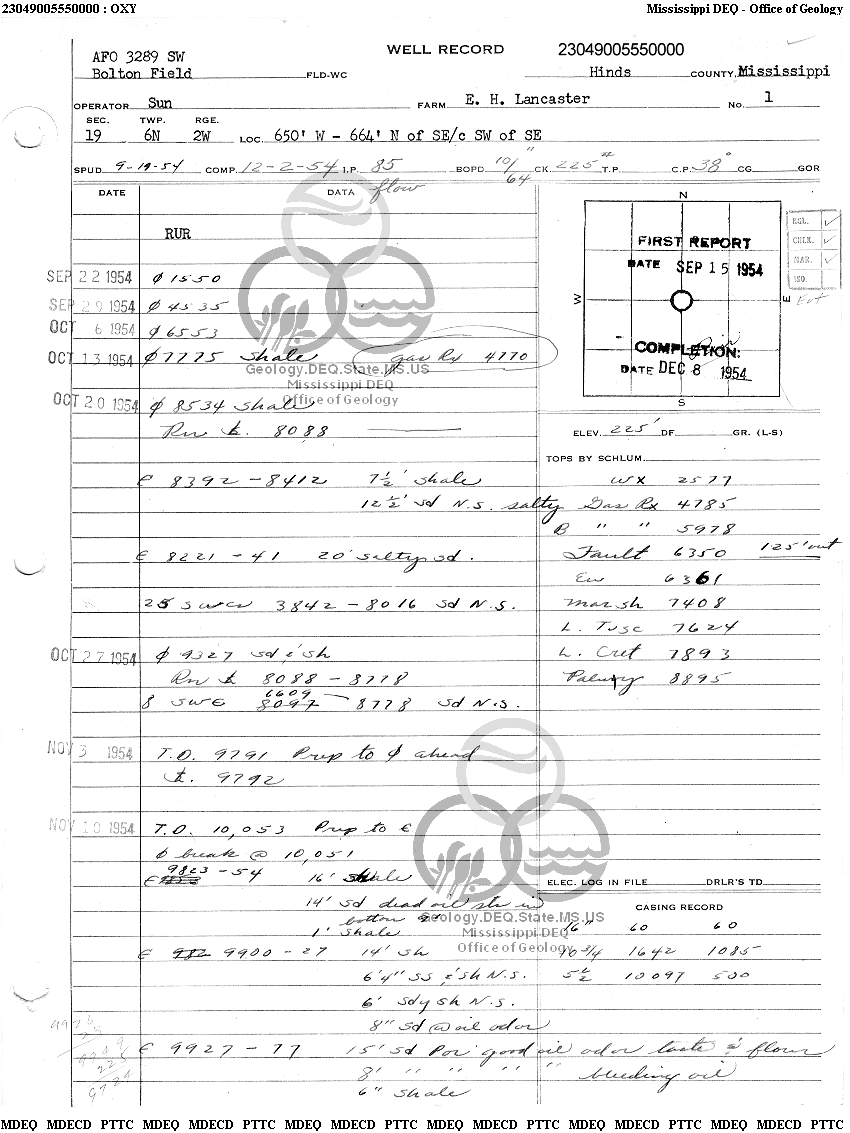 23049005550000 : OXY Mississippi DEQ - Office of Geology
WELL RECORD 23049005550000
AFO 3289 SW
Bolton Field FLD-WC Hinds COUNTY, Mississippi
OPERATOR Sun FARM E. H. Lancaster No. 1
SEC. TWP. RGE.
19 6N 2W LOC. 650' W - 664' N of SE/c SW of SE
SPUD 9-19-54 COMP. 12-2-54 I.P. 85 BOPD 10/64" CK. 225# T.P. C.P. 38° CG GOR
flow
DATE DATA
RUR
SEP 22 1954 ϕ 1550
SEP 29 1954 ϕ 4535
OCT 6 1954 ϕ 6553
OCT 13 1954 ϕ 7775 shale gas Rx 4770
OCT 20 1954 ϕ 8534 shale
Rn 8088
8392 - 8412 7½' shale
12½' sd N.S. salty
8221 - 41 20' salty sd.
25 swcs 3842 - 8016 sd N.S.
OCT 27 1954 ϕ 9327 sd & sh
Rn 8088 - 8778
8 swc 6609 8097 - 8778 sd N.S.
NOV 3 1954 T.D. 9791 Prep to ϕ ahead
9792
NOV 10 1954 T.D. 10,053 Prep to
break @ 10,051
9823 - 54 16' shale
14' sd dead oil stn in
bottom
1' shale
9900 - 27 14' sh
6'4" ss & sh N.S.
6' sdy sh N.S.
8" sd @ oil odor
9927 - 77 15' sd Por good oil odor taste & flour
8' " " " " " bleeding oil
6" shale
N
W
E
S
FIRST REPORT
DATE SEP 15 1954
COMPLETION:
DATE DEC 8 1954
RGL. ✓
CHLK. ✓
MAR. ✓
ISO.
ELEV. 225' DF GR. (L-S)
TOPS BY SCHLUM.
WX 2577
Gas Rx 4785
B " " 5978
Fault 6350 125' out
Eu 6361
Marsh 7408
L. Tusc 7624
L. Cret 7893
Paluxy 8895
ELEC. LOG IN FILE DRLR'S TD
CASING RECORD
16" 60 60
10 3/4 1642 1085
5½ 10097 500
Geology.DEQ.State.MS.US
Mississippi DEQ
Office of Geology
Geology.DEQ.State.MS.US
Mississippi DEQ
Office of Geology
MDEQ MDECD PTTC MDEQ MDECD PTTC MDEQ MDECD PTTC MDEQ MDECD PTTC MDEQ MDECD PTTC